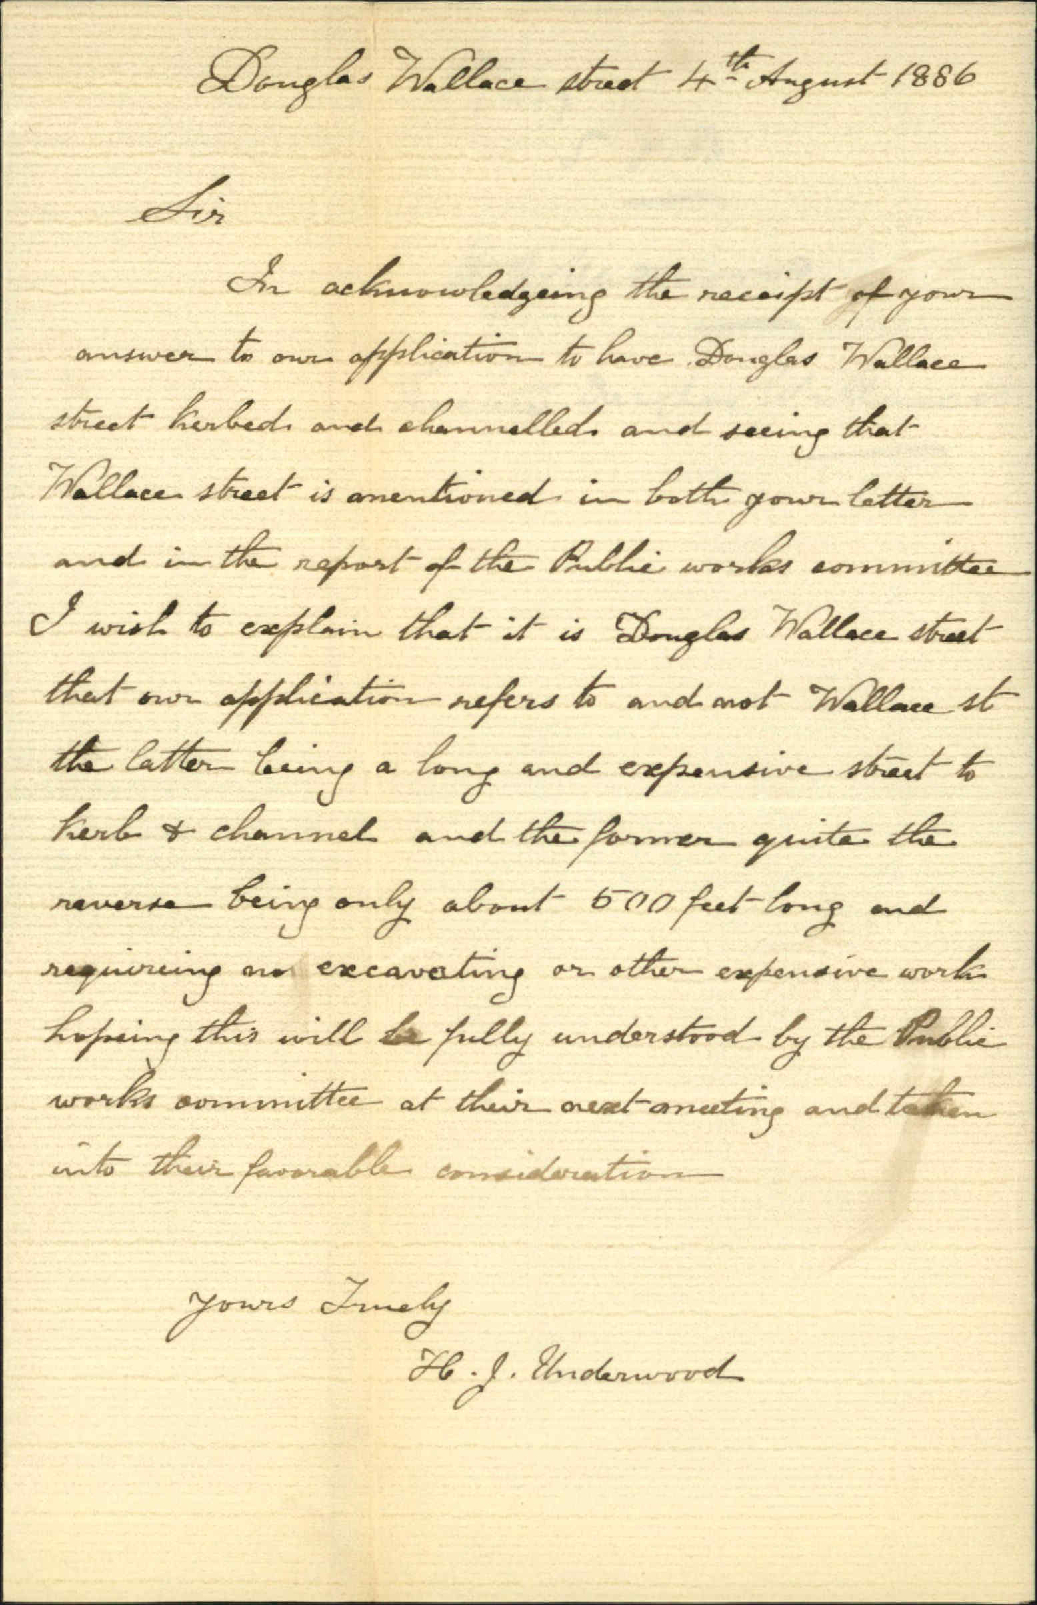 Douglas Wallace street 4th August 1886
Sir
In acknowledgeing the receipt of your
answer to our application to have Douglas Wallace
street kerbed and channelled and seeing that
Wallace street is mentioned in both your letter
and in the report of the Public works committee
I wish to explain that it is Douglas Wallace street
that our application refers to and not Wallace st
the latter being a long and expensive street to
kerb & channel and the former quite the
reverse being only about 500 feet long and
requireing no excavating or other expensive work
hopeing this will be fully understood by the Public
works committee at their next meeting and taken
into their favorable consideration
yours Truely
H. J. Underwood